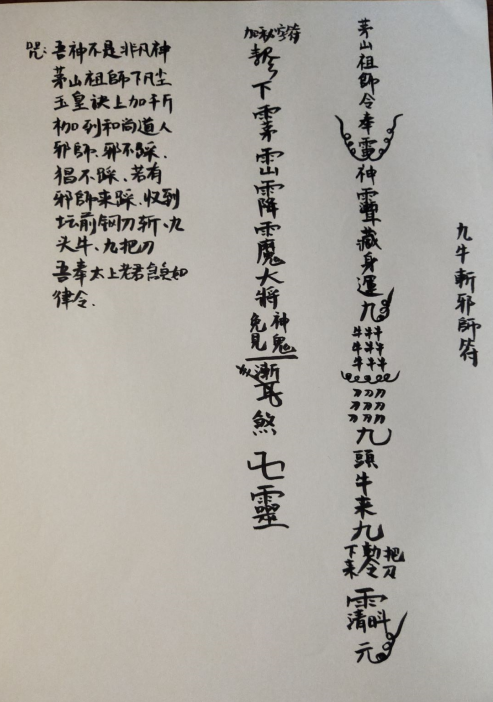 九牛斬邪師符
茅山祖師令奉電神藏身運九
牛牛牛
牛牛牛
牛牛牛
刀刀刀
刀刀刀
刀刀刀
九頭牛来九
把刀
勅令
下来
清
元
加秘字符
下山降魔大將
神鬼
免見
漸
煞
靈
咒:吾神不是非凡神
茅山祖師下凡尘
玉皇诀上加千斤
枷列和尚道人
邪師.邪不踩.
猖不踩、若有
邪師来踩.收到
坛前钢刀斩、九
头牛、九把刀
吾奉太上老君急急如
律令.